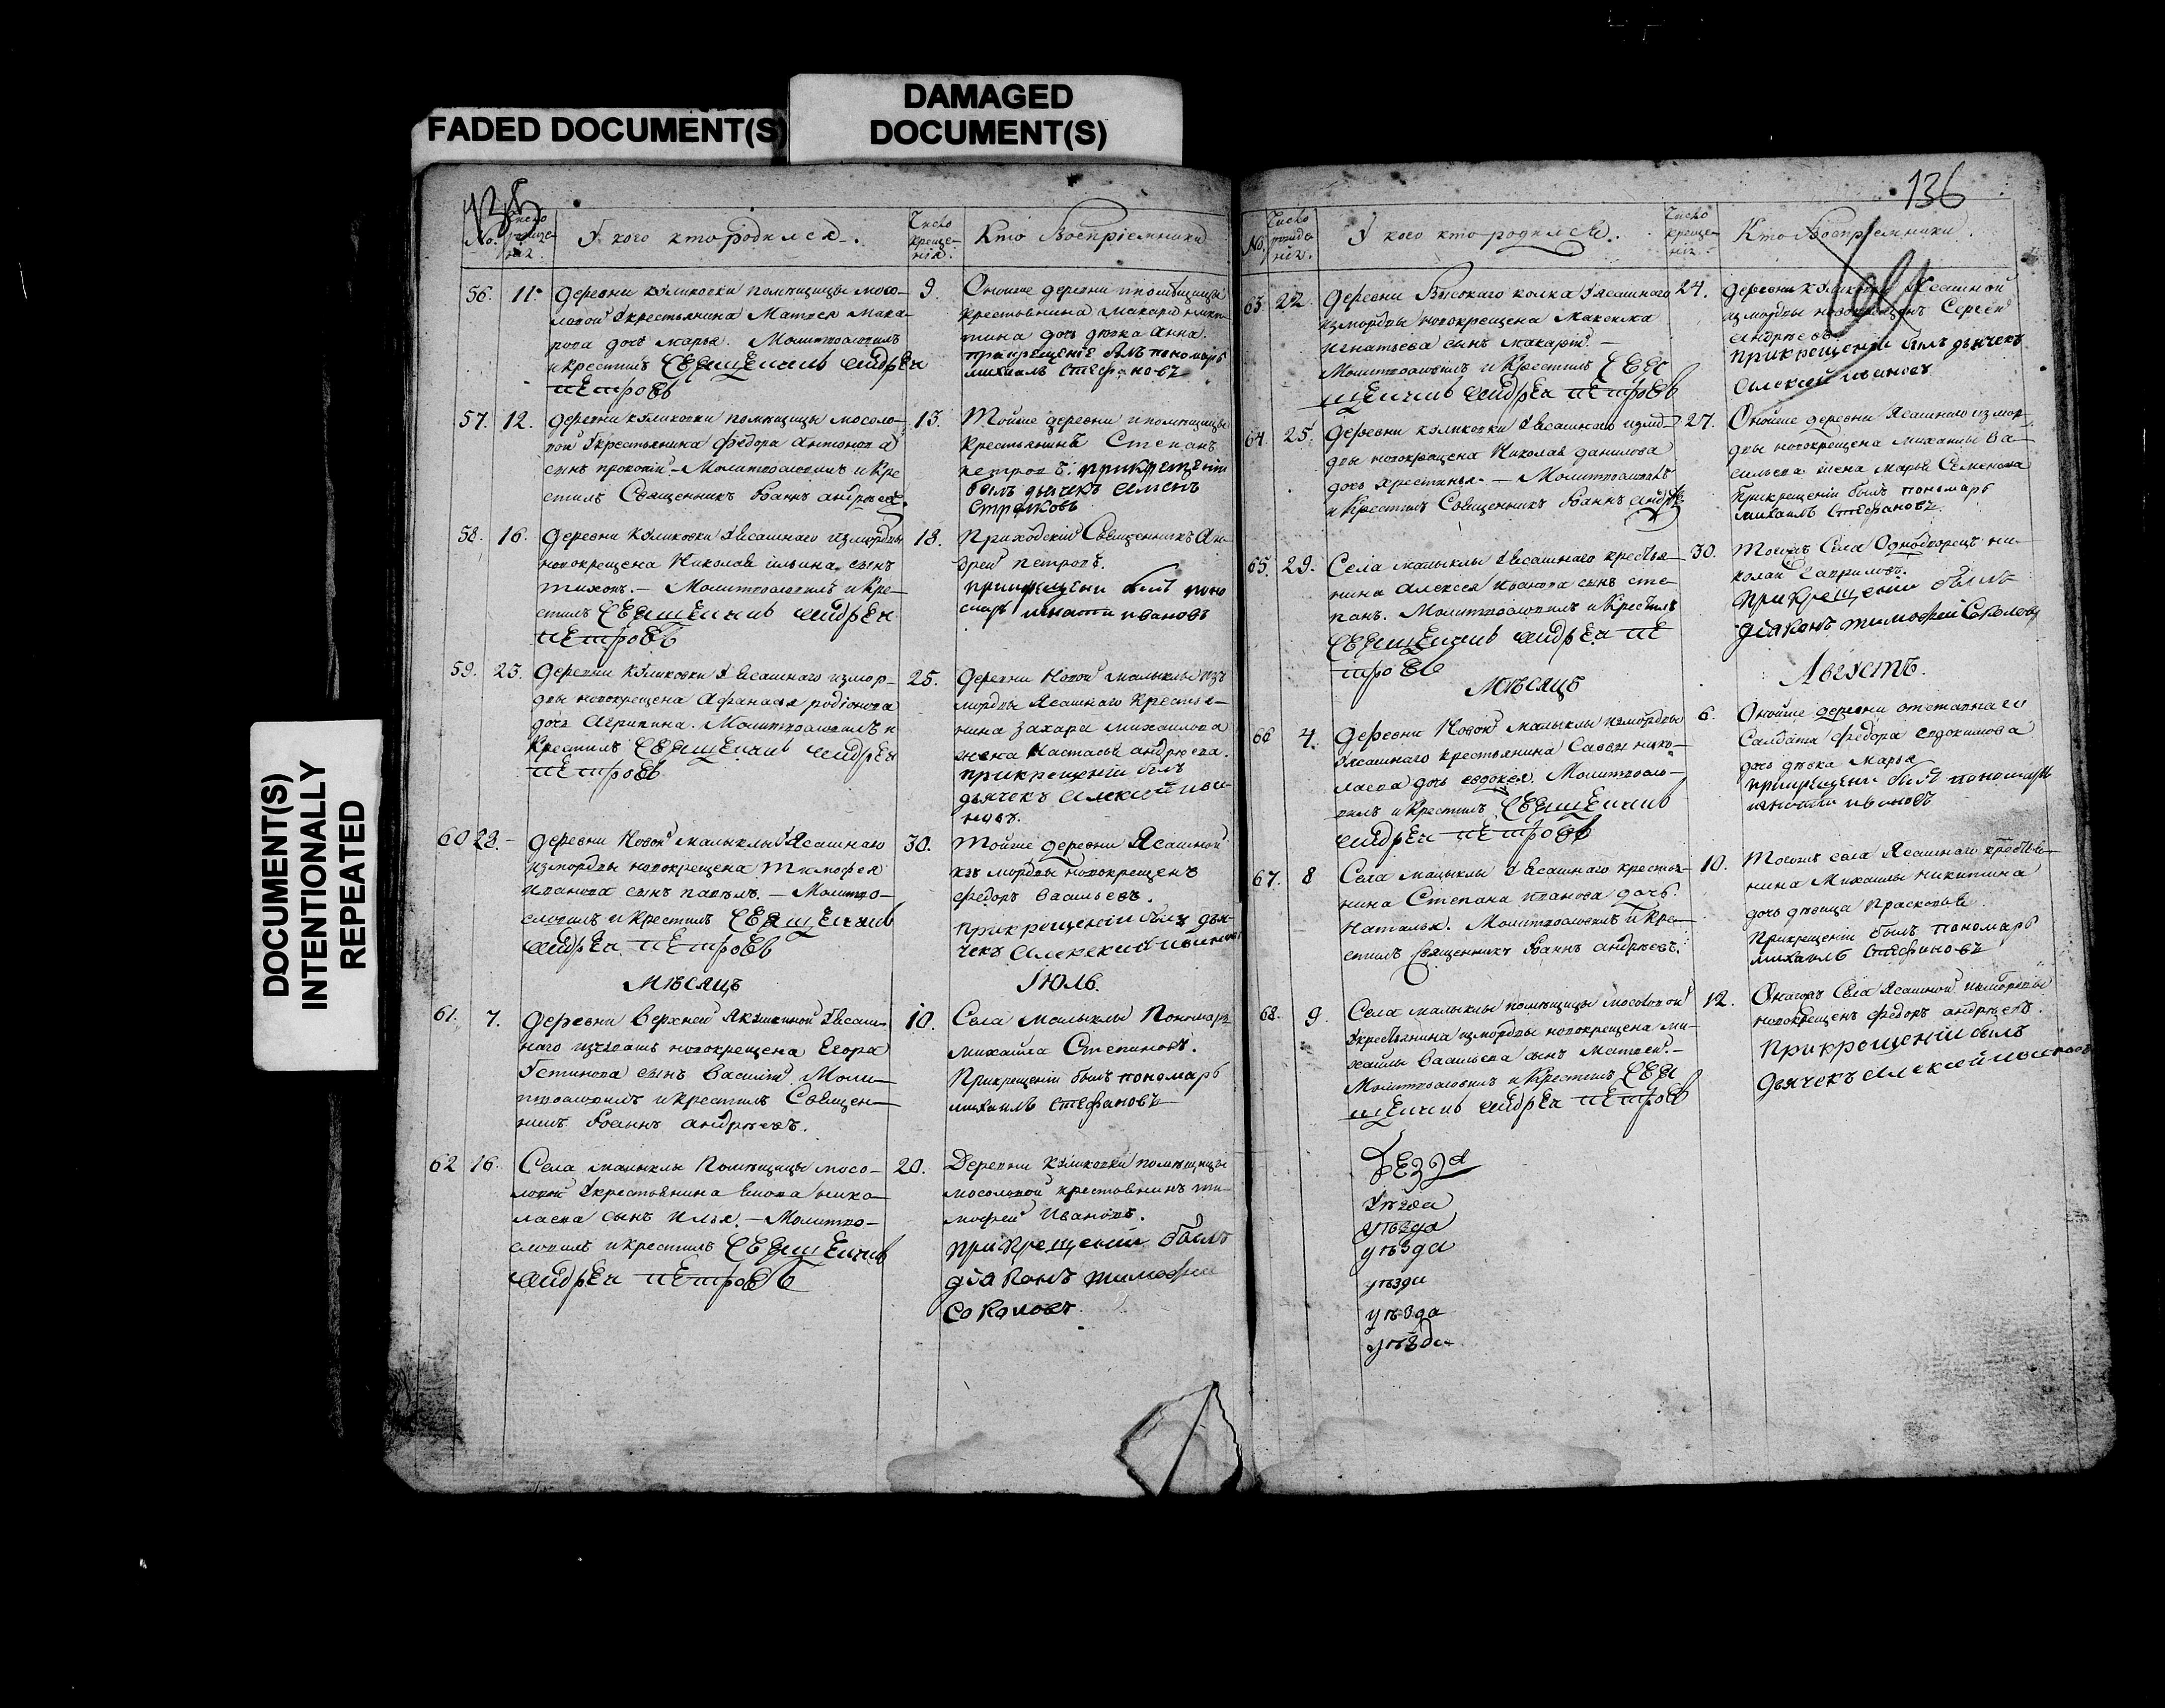 FADED DOCUMENT(S)
DAMAGED
DOCUMENT(S)
DOCUMENT(S)
INTENTIONALLY
REPEATED
No.
Число
У кого кто родился.
Число
креще-
нія.
Кто Воспріемники
56.
11.
Деревни Куликовки помѣщицы мосо-
ловой у крестьянина Матвея Мака-
рова дочь марья. Молитвословилъ
и крестилъ Священникъ Андрей
Петровъ
9.
Оной же деревни и помѣщицы
крестьянина макара ники-
тина дочь дѣвка Анна.
при крещеніе былъ пономарь
михаилъ Стефановъ
57.
12.
Деревни Куликовки помѣщицы мосоло-
вой у крестьянина Федора Антонова
сынъ прокопій – Молитвословилъ и кре
стилъ Священникъ Іоаннъ андреевъ.
13.
Той же деревни и помѣщицы
крестьянинъ Степанъ
петровъ. при крещеніи
былъ дьячекъ
58.
16.
Деревни Куликовки у ясашнаго измордвы
новокрещена Николая ильина сынъ
тихонъ. – Молитвословилъ и кре-
стилъ Священникъ Андрей
Петровъ
18.
Приходскій Священникъ Ан-
дрей петровъ.
при крещени былъ поно
марь игнати ивановъ
59.
23.
Деревни Куликовки у ясашнаго измор-
двы новокрещена Афанасья родіонова
дочь Агрипина. Молитвословилъ и
крестилъ Священникъ Андрей
Петровъ
25.
Деревни Новой малыклы изъ
мордвы Ясашнаго крестья-
нина захара михайлова
жена Настасья андреева.
при крещеніи былъ
дьячекъ Алексей ива-
новъ.
60
28.
Деревни Новой малыклы у Ясашнаго
измордвы новокрещена Тимофея
иванова сынъ павелъ. – Молитво-
словилъ и крестилъ Священникъ
Андрей Петровъ
30.
Той же деревни Ясашной
изъ мордвы новокрещенъ
федоръ Васильевъ.
при крещеніи былъ дья-
чекъ Алексей ивановъ
Мѣсяцъ
Іюль.
61.
7.
Деревни Верхней Якушкиной у Ясаш-
наго изчювашъ новокрещена Егора
Устинова сынъ Василій. Моли-
твословилъ и крестилъ Священ-
никъ Іоаннъ андреевъ.
10.
Села малыклы Пономаря
михайла Степановъ.
При крещеніи былъ пономарь
михаилъ Стефановъ
62
16.
Села малыклы Помѣщицы мосо-
ловой у крестьянина нико-
лаева сынъ илья. – Молитво-
словилъ и крестилъ Священникъ
Андрей Петровъ
20.
Деревни Куликовки помѣщицы
мосоловой крестьянинъ ти-
мофей Ивановъ.
при крещеніи былъ
діаконъ тимофей
Соколовъ.
136
No.
Число
рожде-
нія.
У кого кто родился.
Число
креще-
нія.
Кто Воспріемники.
63.
22.
Деревни Высокаго колка у ясашнаго
измордвы новокрещена Максима
игнатьева сынъ макарій. –
Молитвословилъ и крестилъ Свя
щенникъ Андрей Петровъ
24.
Деревни Куликовки Ясашной
измордвы новокрещенъ Сергей
андреевъ
при крещеніи былъ дьячекъ
Алексей ивановъ
64.
25.
Деревни Куликовки у ясашнаго измор-
двы новокрещена Николая данилова
дочь крестинья. – Молитвословилъ
и крестилъ Священникъ Іоаннъ андре
27.
Оной же деревни Ясашнаго измор-
двы новокрещена михайлы Ва-
сильева жена марья Семенова
При крещеніи былъ пономарь
михаилъ Стефановъ.
65.
29.
Села малыклы у ясашнаго крестья-
нина Алексея иванова сынъ сте-
панъ. Молитвословилъ и крестилъ
Священникъ Андрей Пе
тровъ
30.
Тогожъ Села Однодворецъ ни-
колай Гавриловъ.
при крещеніи былъ
діаконъ тимофей Соколовъ
Мѣсяцъ
Августъ.
66
4.
Деревни Новой малыклы измордвы
у ясашнаго крестьянина Савы нико-
лаева дочь евдокея. Молитвосло-
вилъ и крестилъ Священникъ
Андрей Петровъ
6.
Оной же деревни отставнаго
Салдата Федора Евдокимова
дочь дѣвка Марья
при крещени былъ пономарь
игнати ивановъ
67.
8
Села малыклы у ясашнаго крестья-
нина Степана иванова дочь
Наталья. Молитвословилъ и кре-
стилъ Священникъ Іоаннъ андреевъ.
10.
Тогожъ села Ясашнаго крестья-
нина Михайлы никитина
дочь девица Прасковья.
При крещеніи былъ пономарь
михаилъ Стефановъ
68.
9.
Села малыклы помѣщицы мосоловой
у крестьянина измордвы новокрещена ми-
хайлы Васильева сынъ Матвей. –
Молитвословилъ и крестилъ Свя
щенникъ Андрей Петровъ
12.
Онагожъ Села Ясашной измордвы
новокрещенъ федоръ андреевъ.
при крещеніи былъ
дьячекъ Алексей ивановъ
уѣзда
уѣзда
уѣзда
уѣзда
уѣзда
уѣзда